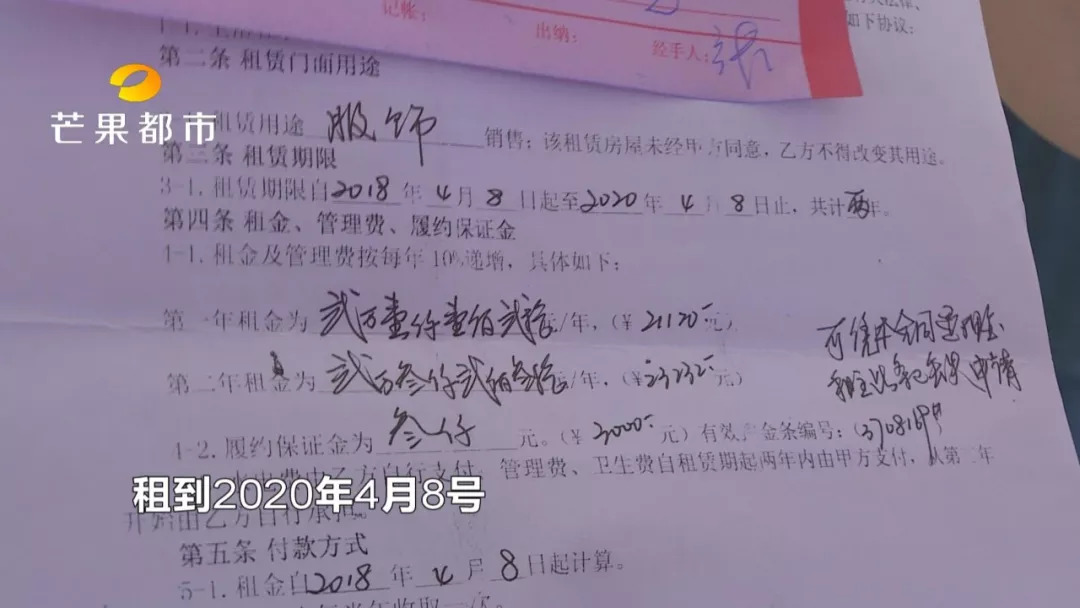 记帐：
出纳：
经手人：
如下协议：
第二条 租赁门面用途
芒果都市
租赁用途 服饰 销售；该租赁房屋未经甲方同意，乙方不得改变其用途。
第三条 租赁期限
3-1. 租赁期限自2018年4月8日起至2020年4月8日止，共计两年。
第四条 租金、管理费、履约保证金
4-1. 租金及管理费按每年10%递增，具体如下：
第一年租金为 贰万壹仟壹佰贰拾元/年，（￥21120元）
第二年租金为 贰万叁仟贰佰叁拾元/年，（￥23232元）
可凭本合同
申请
4-2. 履约保证金为 叁仟 元。（￥3000元）有效 金条编号：（3708169）
费由乙方自行支付，管理费、卫生费自租赁期起两年内由甲方支付，从第二年
开始由乙方自行承担。
租到2020年4月8号
第五条 付款方式
5-1. 租金自2018年4月8日起计算。
收取一次。